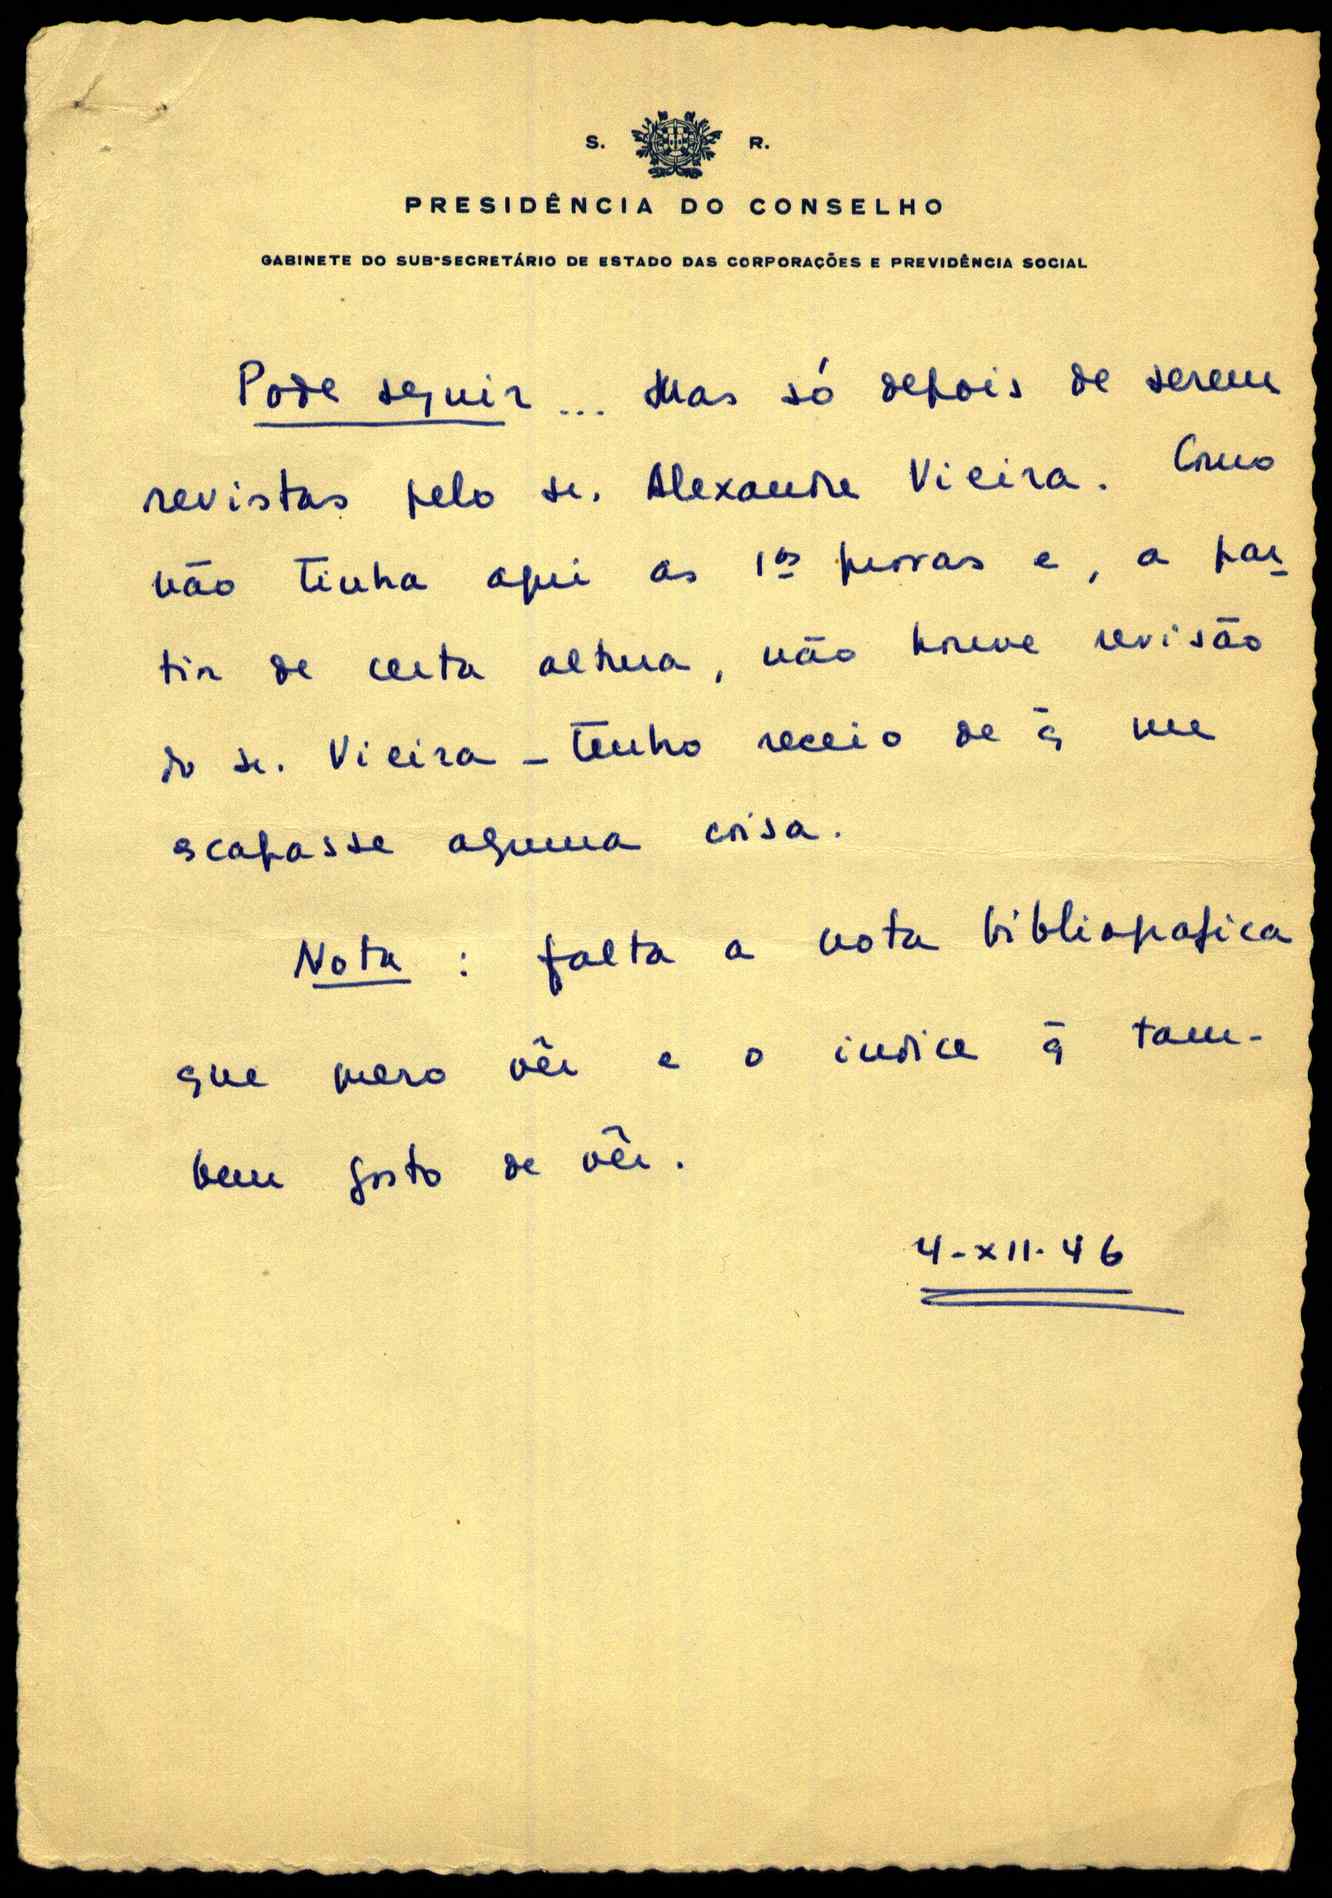 S. R.
PRESIDÊNCIA DO CONSELHO
GABINETE DO SUB-SECRETÁRIO DE ESTADO DAS CORPORAÇÕES E PREVIDÊNCIA SOCIAL
Pode seguir ... Mas só depois de serem
revistas pelo sr. Alexandre Vieira. Como
não tinha aqui as 1as provas e, a par-
tir de certa altura, não houve revisão
do sr. Vieira - tenho receio de q̄ me
escapasse alguma coisa.
Nota : falta a nota bibliografica
que quero vêr e o indice q̄ tam-
bem gosto de vêr.
4-XII-46